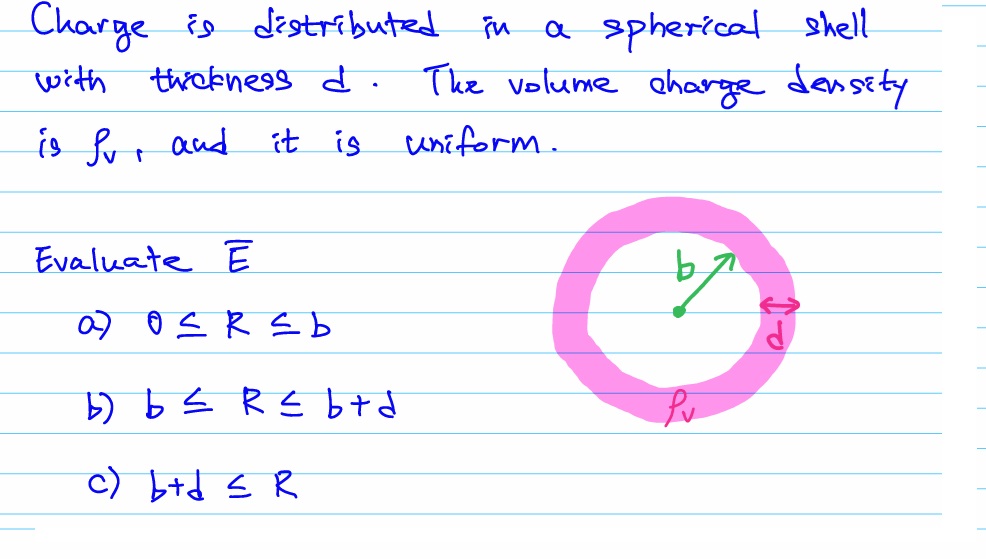 Charge is distributed in a spherical shell
with thickness d. The volume charge density
is ρv, and it is uniform.
Evaluate E̅
a) 0 ≤ R ≤ b
b) b ≤ R ≤ b+d
c) b+d ≤ R
b
d
ρv